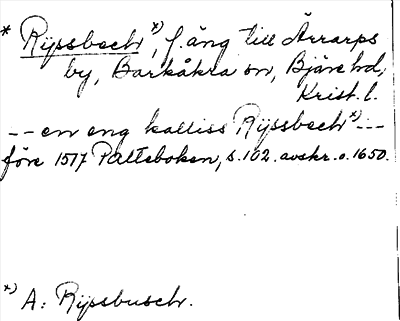 * Rijssbech *), f. äng till Ärrarps
by, Barkåkra sn, Bjäre hd,
Krist. l.
-- en eng kalliss Rijssbech *) --
före 1517 Palteboken, s. 102. avskr. o. 1650.
*) A: Rijssbusch.